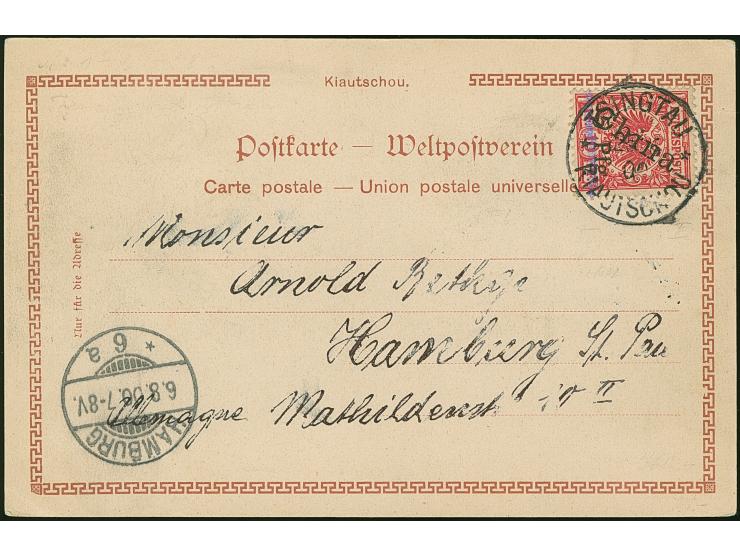 Kiautschou.
Postkarte — Weltpostverein
Carte postale — Union postale universelle
Nur für die Adresse
Monsieur
Arnold
Hamburg St. Pau
Allemagne Mathildenstr II
TSINGTAU
China
KIAUTSCHOU
HAMBURG
6.8.00.7-8V.
* 6 a